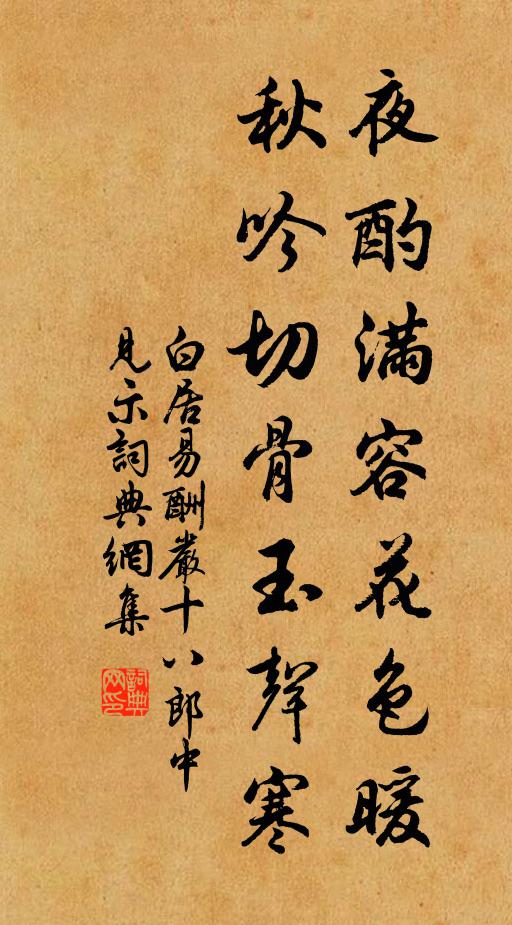 夜酌滿容花色暖
秋吟切骨玉聲寒
白居易酬嚴十八郎中
見示詞典網集
詞典
网印